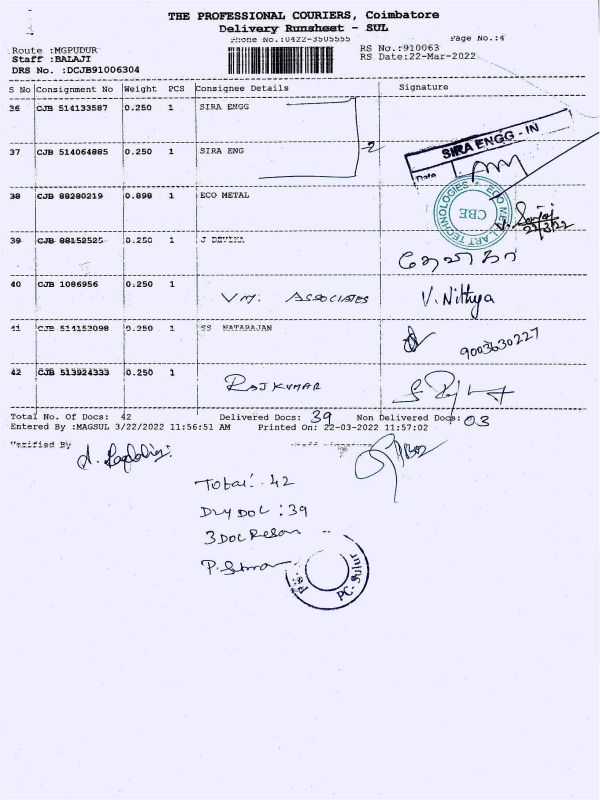 THE PROFESSIONAL COURIERS, Coimbatore
Delivery Runsheet - SUL
Phone No.:0422-3505555 Page No.:4
Route :MGPUDUR RS No.:910063
Staff :BALAJI RS Date:22-Mar-2022
DRS No. :DCJB91006304
S No Consignment No Weight PCS Consignee Details Signature
36 CJB 514133587 0.250 1 SIRA ENGG
37 CJB 514064885 0.250 1 SIRA ENG 2
SIRA ENGG - IN
Date
38 CJB 88280219 0.898 1 ECO METAL
ECO METAL ART TECHNOLOGIES
CBE
V. Sanjai
22/3/22
39 CJB 88152525 0.250 1 J DEVIKA
தேவிகா
40 CJB 1086956 0.250 1 VM. ASSOCIATES V. Nithya
41 CJB 514153098 0.250 1 SS NATARAJAN 9003630227
42 CJB 513924333 0.250 1 RAJKUMAR
Total No. Of Docs: 42 Delivered Docs: 39 Non Delivered Docs: 03
Entered By :MAGSUL 3/22/2022 11:56:51 AM Printed On: 22-03-2022 11:57:02
Verified By Staff Signature
Total: 42
DLY DOC : 39
3 DOC Reson
PC-Sulur